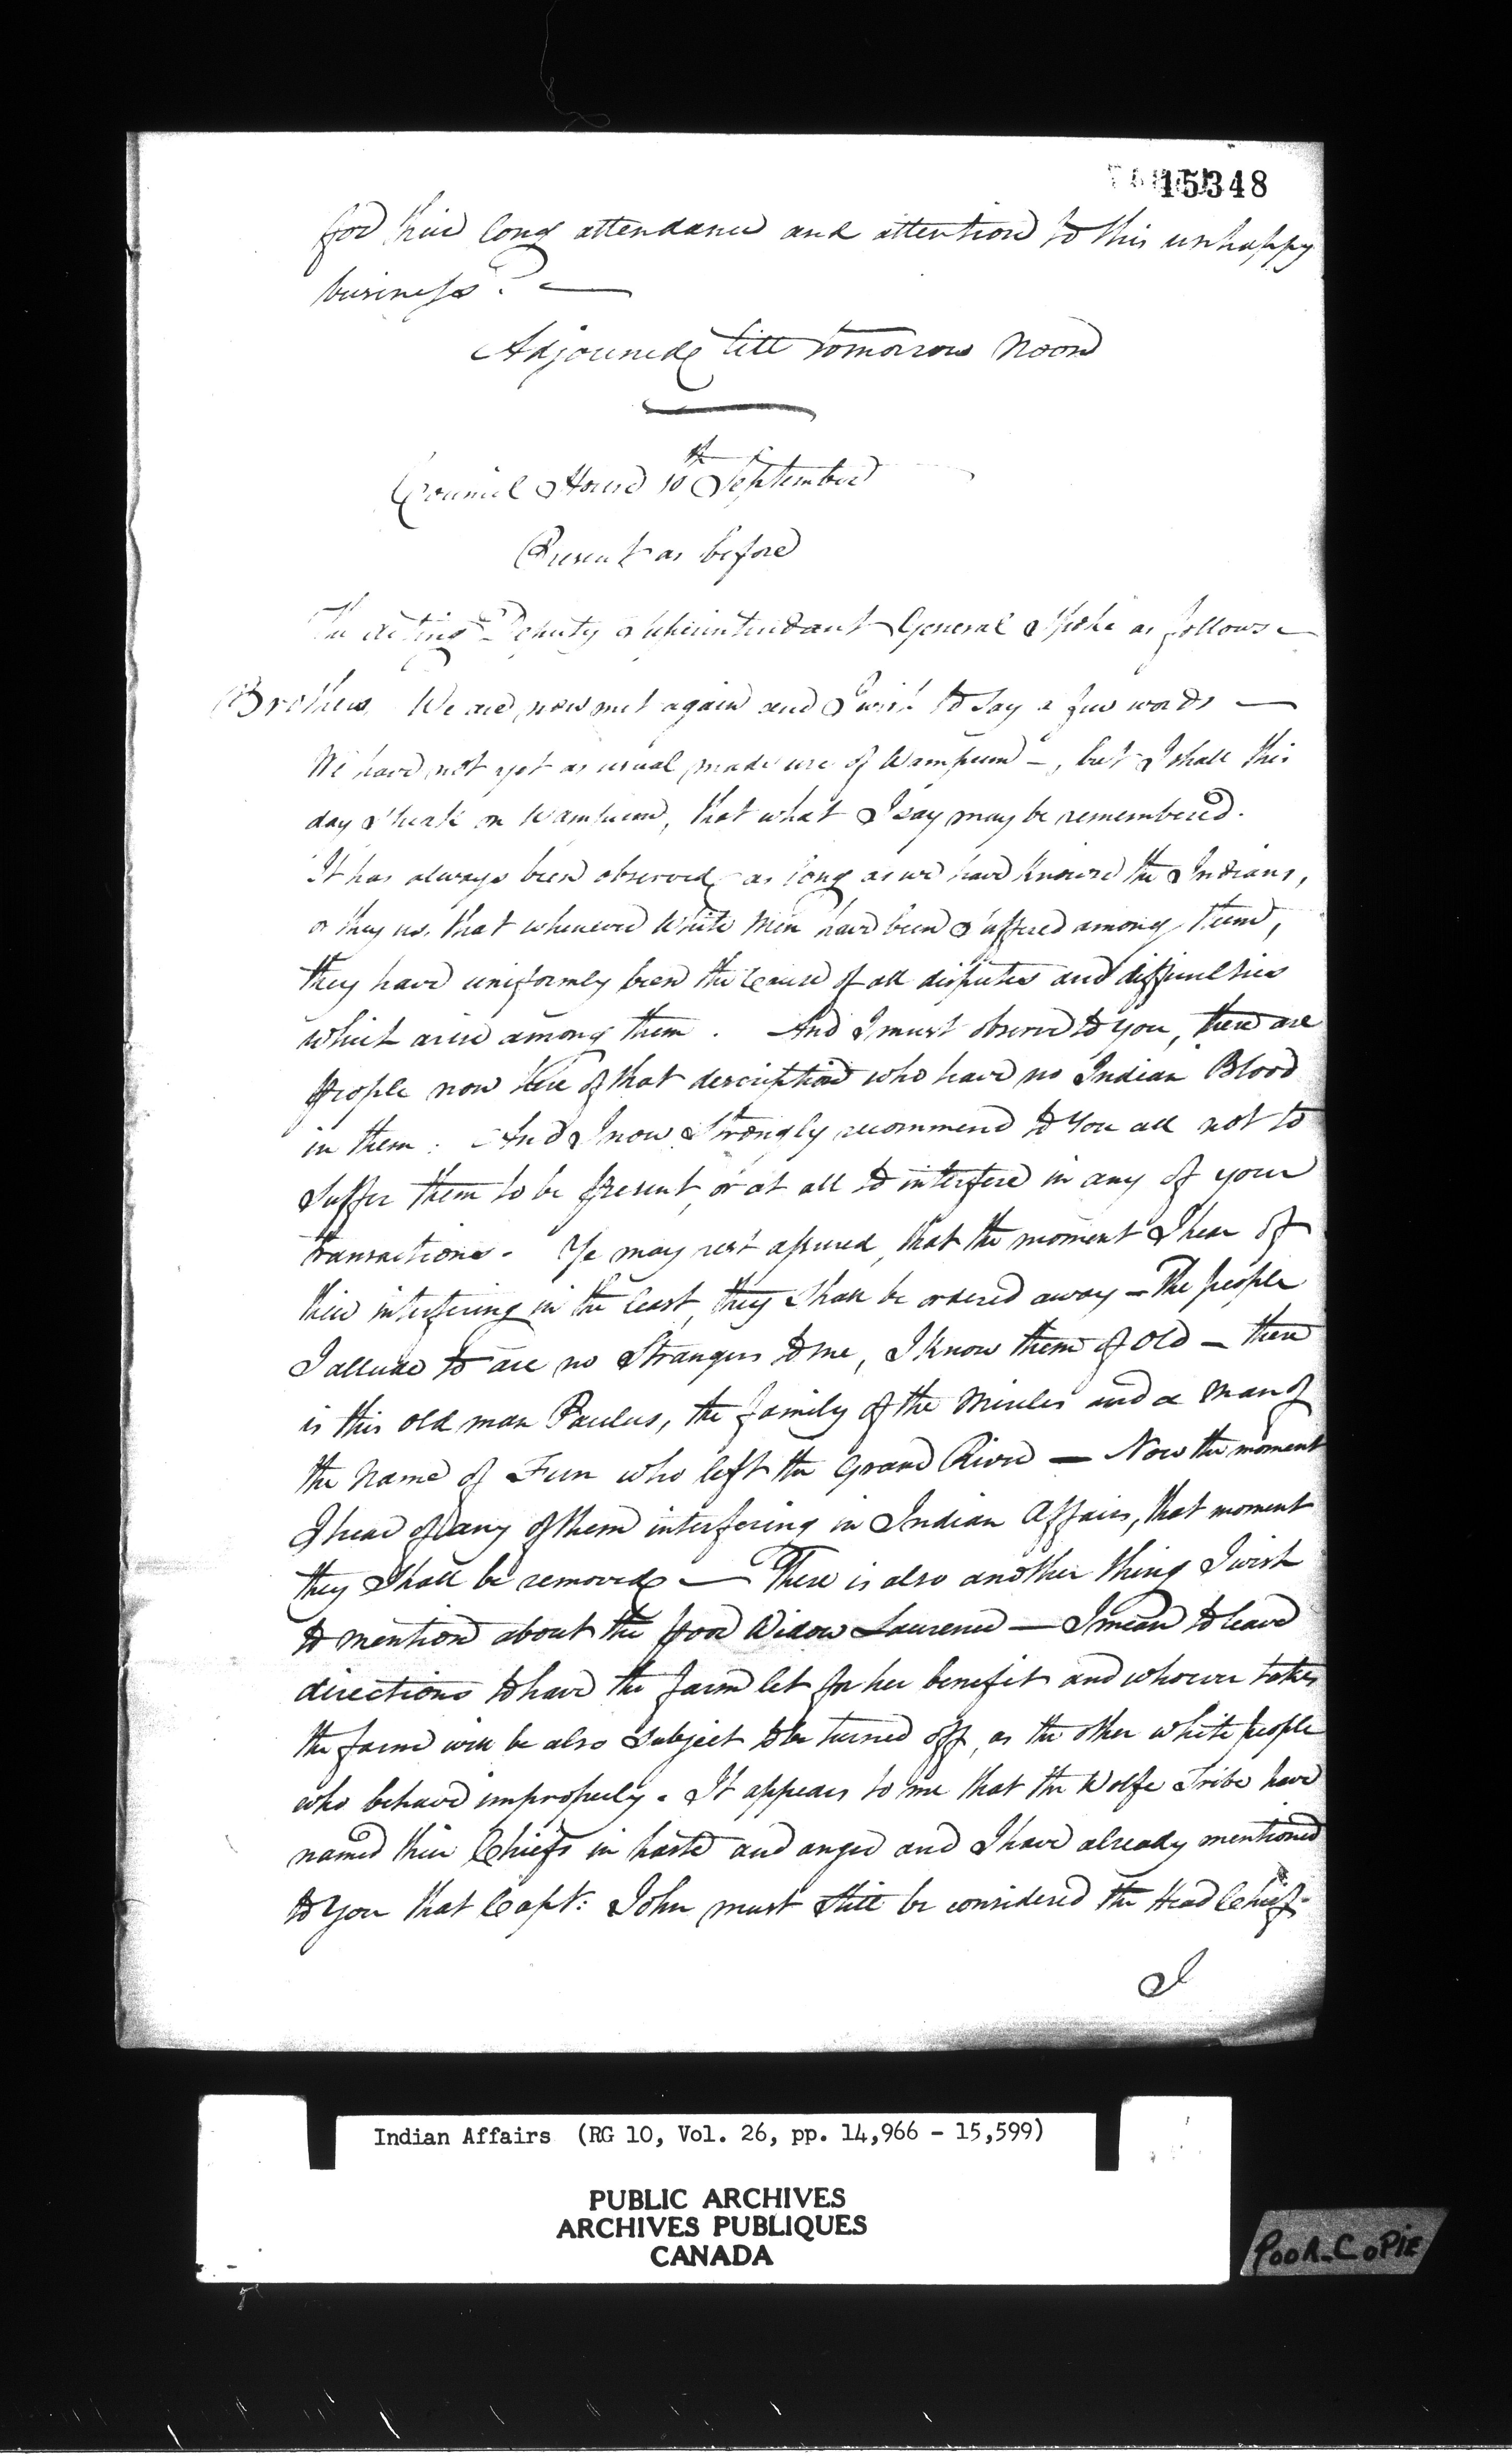 15348
for their long attendance and attention to this unhappy
business. —
Adjourned till tomorrow Noon
Council House 10th September
Present as before
The Acting Deputy Superintendant General Spoke as follows —
Brothers, We are now met again and I wish to say a few words —
We have not yet as usual made use of Wampum —, but I shall this
day Speak on Wampum, that what I say may be remembered.
It has always been observed as long as we have known the Indians,
or they us, that whenever White Men have been suffered among them,
they have uniformly been the Cause of all disputes and difficulties
which arise among them. And I must observe to you, there are
people now here of that description who have no Indian Blood
in them. And I now Strongly recommend to You all not to
Suffer them to be present, or at all to interfere in any of your
transactions. Ye may rest assured, that the moment I hear of
their interfering in the least, they Shall be ordered away — The people
I allude to are no Strangers to me, I know them of Old — there
is this old man Paulus, the family of the and a Man of
the Name of who left the Grand River — Now the moment
I hear of any of them interfering in Indian Affairs, that moment
they Shall be removed — There is also another thing I wish
to mention about the poor Widow Laurence — I mean to leave
directions to have the farm let for her benefit and whoever takes
the farm will be also Subject to be turned off, as the other white people
who behave improperly. It appears to me that the Wolfe Tribe have
named their Chiefs in haste and anger and I have already mentioned
to You that Capt: John must Still be considered the Head Chief.
I
Indian Affairs (RG 10, Vol. 26, pp. 14,966 - 15,599)
PUBLIC ARCHIVES
ARCHIVES PUBLIQUES
CANADA
POOR_COPIE